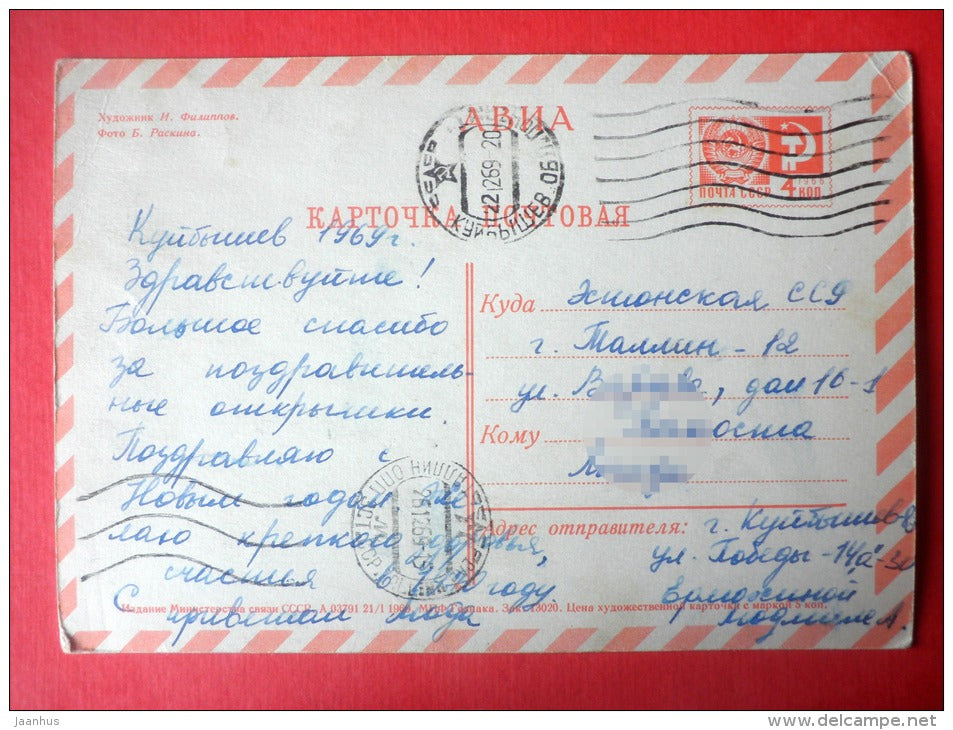 Художник И. Филиппов.
Фото Б. Раскина.
АВИА
КАРТОЧКА ПОЧТОВАЯ
ПОЧТА СССР 4 КОП
1966
СССР
22 12 69 20
КУЙБЫШЕВ
Куйбышев 1969 г.
Здравствуйте!
Большое спасибо
за поздравитель-
ные открытки.
Поздравляю с
Новым годом. Же-
лаю крепкого здоровья,
счастья в 1970 году.
С приветом
Куда Эстонская ССР
г. Таллин - 12
ул. , дом 16-1
Кому
Адрес отправителя: г. Куйбышев
ул. Победы - 14а-
Издание Министерства связи СССР. А 03791 21/1 1969. МПФ Гознака. Зак. 13020. Цена художественной карточки с маркой 5 коп.
jaanhus
www.delcampe.net